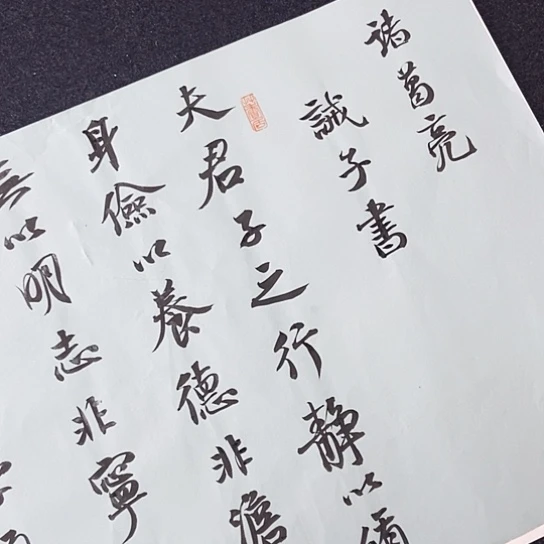 諸葛亮
誡子書
夫君子之行靜以脩
身儉以養德非澹
無以明志非寧